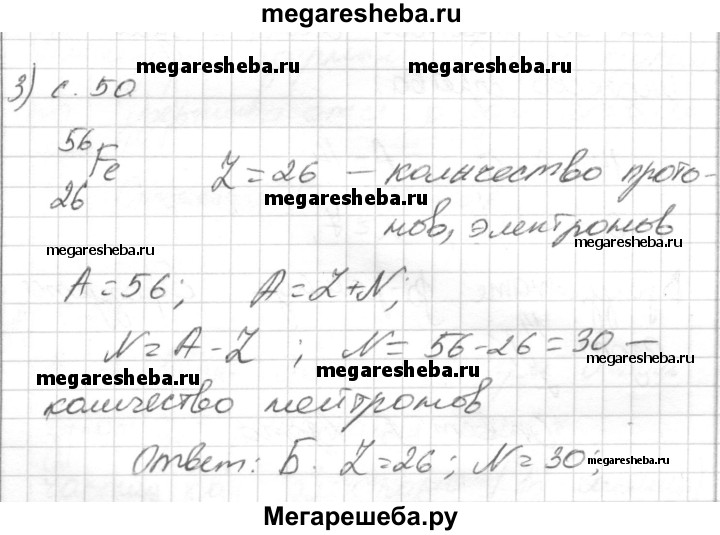 megaresheba.ru
megaresheba.ru megaresheba.ru
3) с. 50
56
Fe Z = 26 — количество прото-
26 megaresheba.ru
нов, электронов
megaresheba.ru megaresheba.ru
A = 56; A = Z + N;
N = A - Z ; N = 56 - 26 = 30 —
megaresheba.ru
megaresheba.ru megaresheba.ru
количество нейтронов
Ответ: Б. Z = 26; N = 30;
megaresheba.ru
Мегарешеба.ру